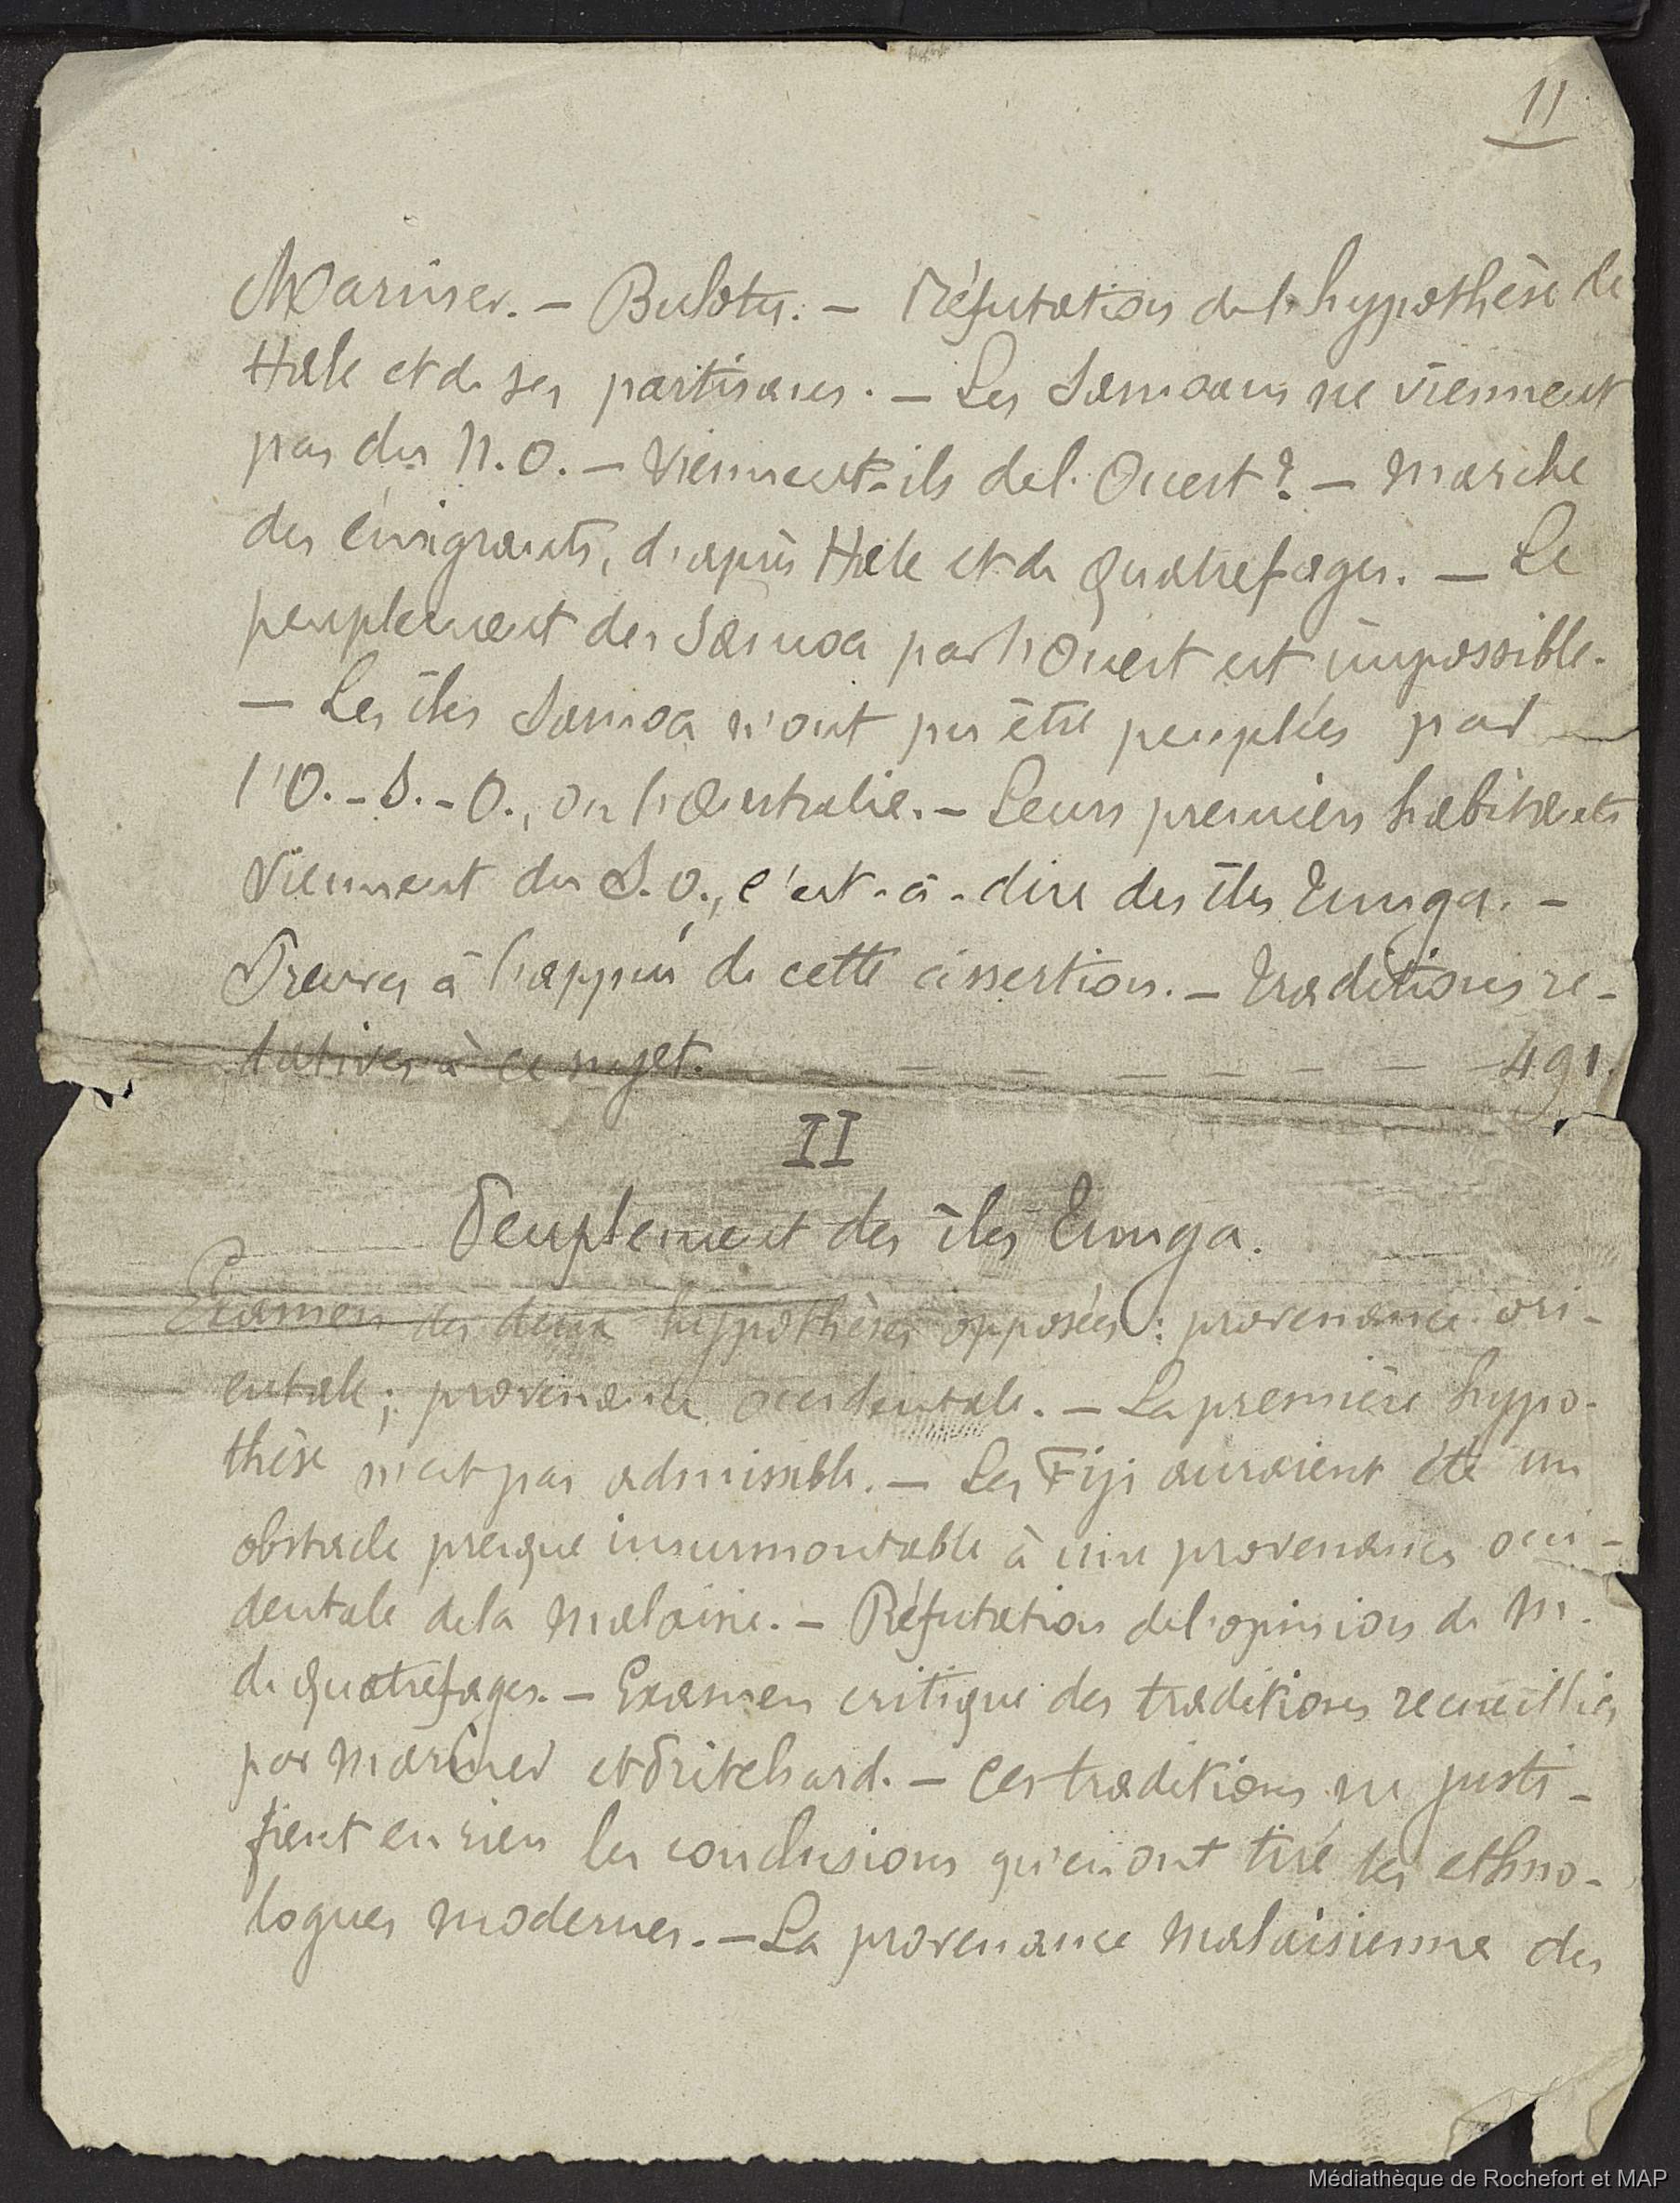 11
Mariner. — Bulotu. — Réfutation de l'hypothèse de
Hale et de ses partisans. — Les Samoans ne viennent
pas du N.O. — Viennent-ils de l'Ouest ? — Marche
des émigrants, d'après Hale et de Quatrefages. — Le
peuplement des Samoa par l'Ouest est impossible.
— Les îles Samoa n'ont pu être peuplées par
l'O.-S.-O., ou l'Australie. — Leurs premiers habitants
viennent du S.O., c'est-à-dire des îles Tunga. —
Preuves à l'appui de cette assertion. — Traditions re-
latives à ce sujet. — — — — — — — 491.
II
Peuplement des îles Tunga.
Examen des deux hypothèses opposées : provenance ori-
entale ; provenance occidentale. — La première hypo-
thèse n'est pas admissible. — Les Fiji auraient été un
obstacle presque insurmontable à une provenance occi-
dentale de la Malaisie. — Réfutation de l'opinion de M.
de Quatrefages. — Examen critique des traditions recueillies
par Mariner et Pritchard. — Ces traditions ne justi-
fient en rien les conclusions qu'en ont tiré les ethno-
logues modernes. — La provenance malaisienne des
Médiathèque de Rochefort et MAP